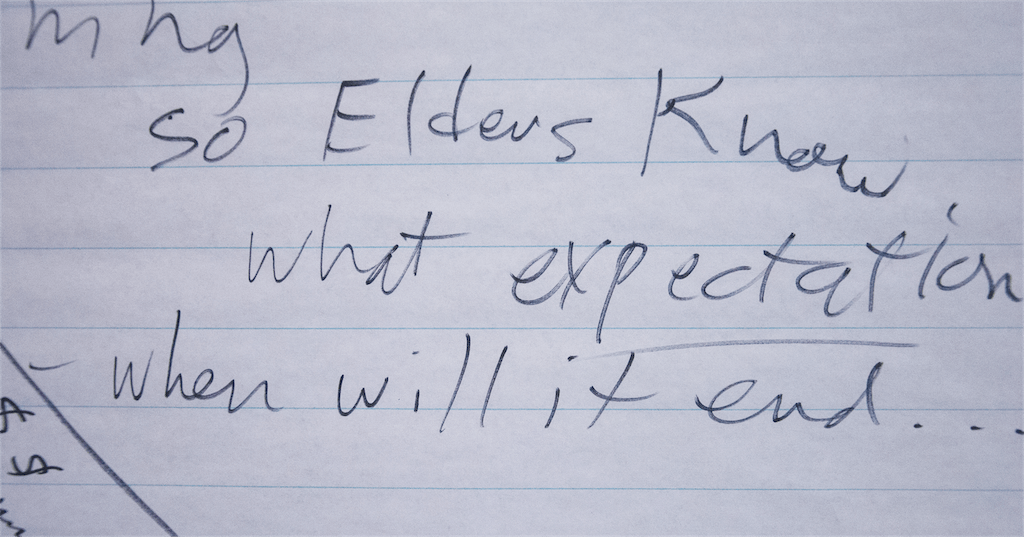 mhg
so Elders Know
what expectation
- when will it end....